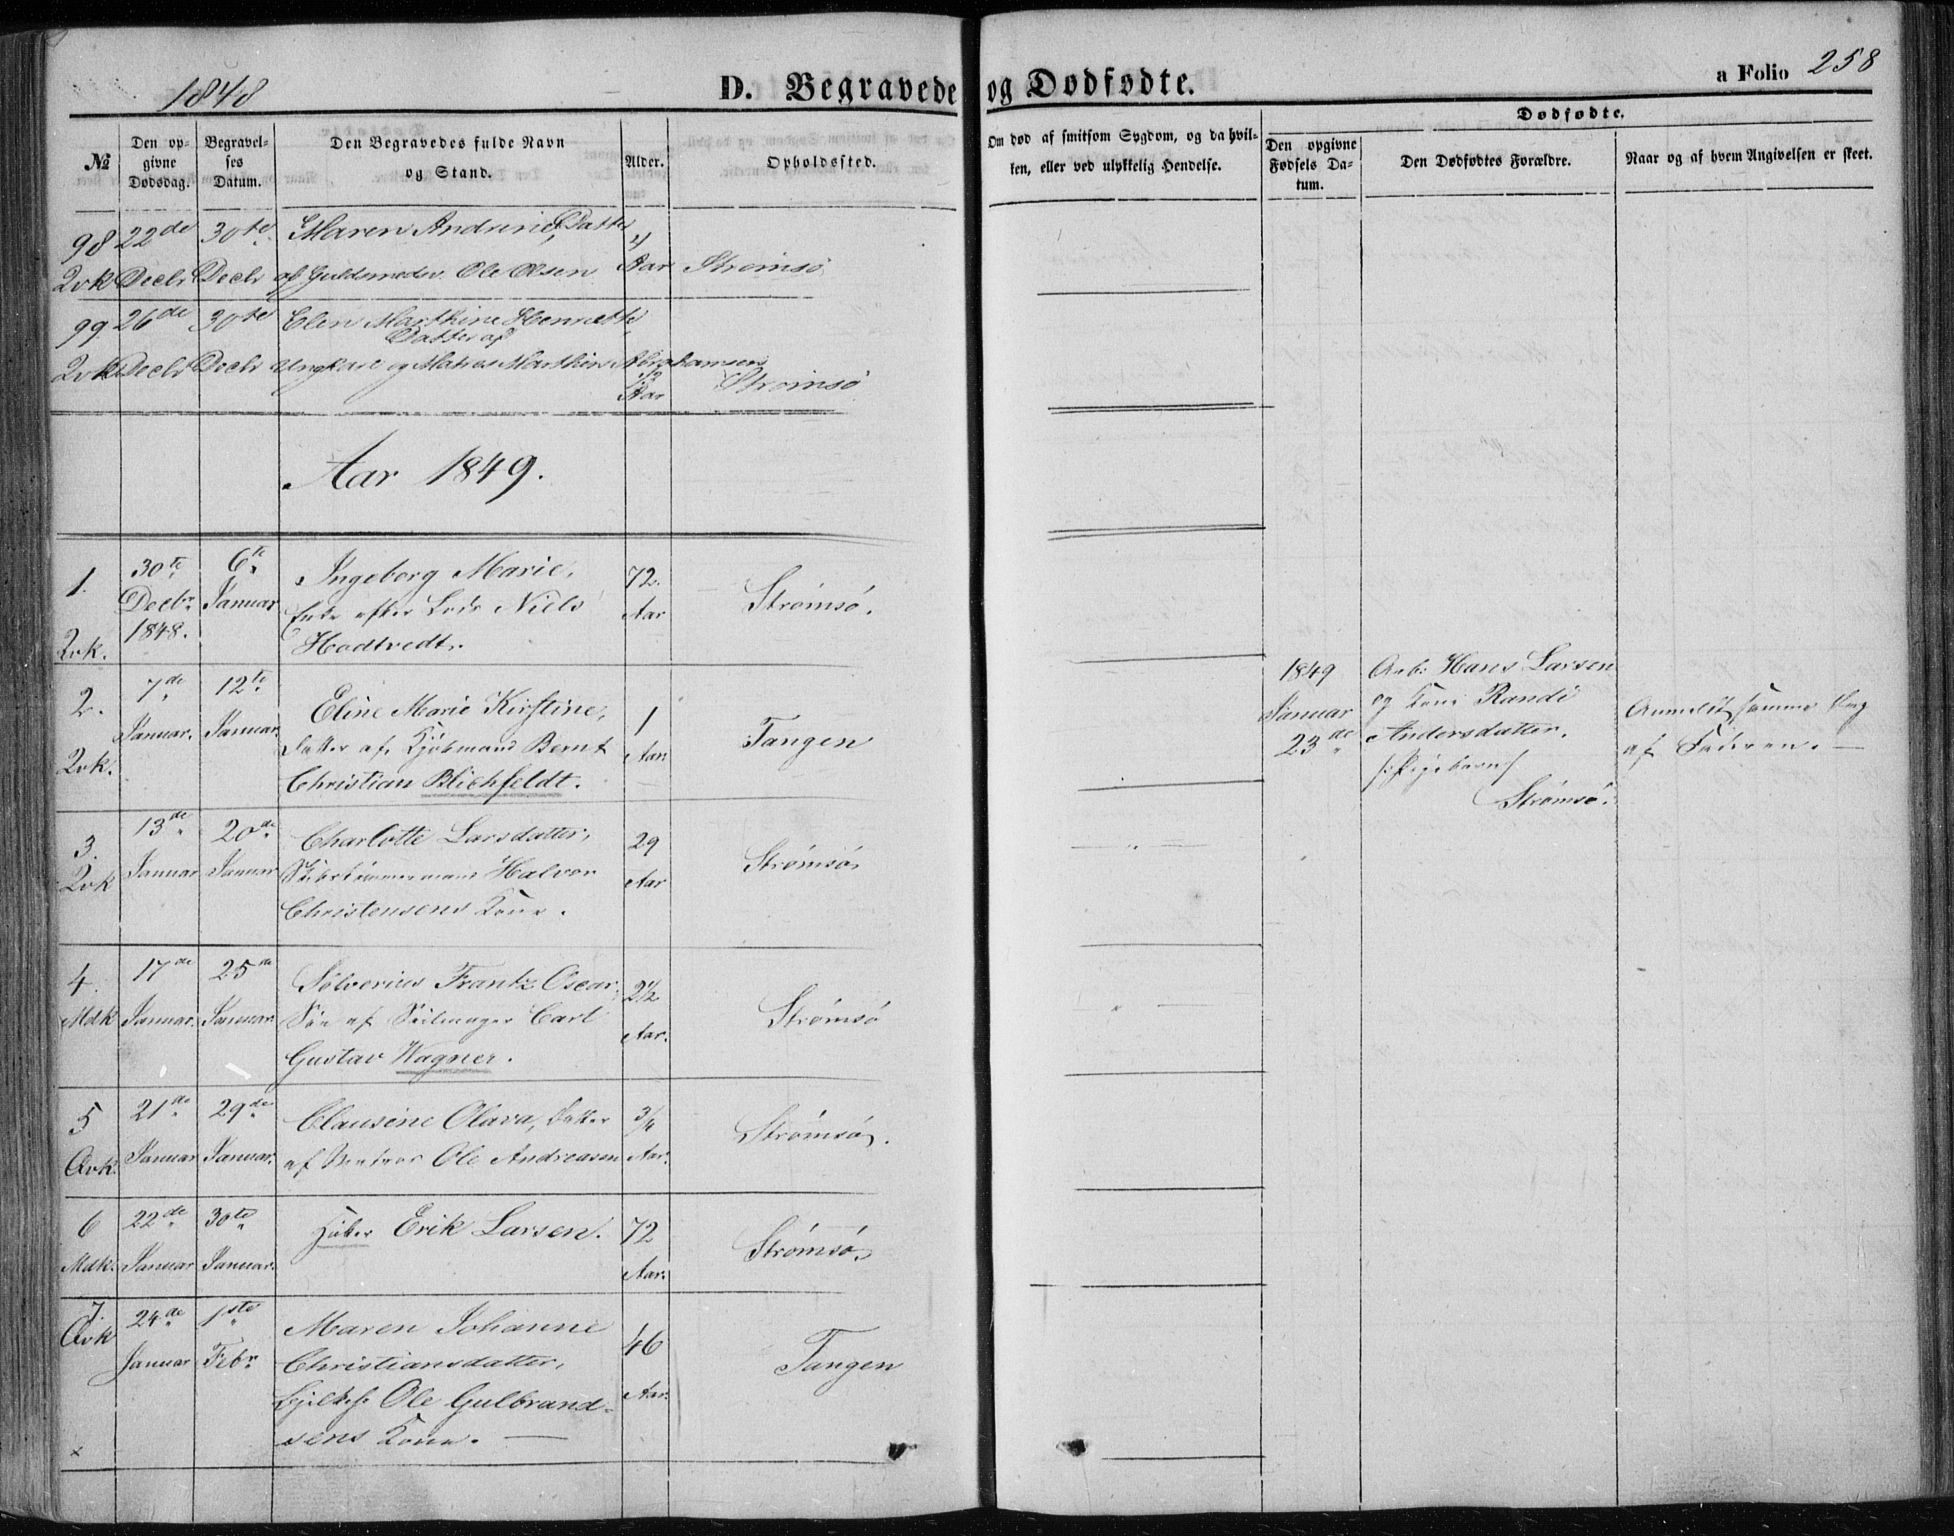 1848
D. Begravede og Dødfødte.
a Folio 258
№
Den opgivne Dødsdag.
Begravelses Datum.
Den Begravedes fulde Navn og Stand.
Alder.
Opholdssted.
Om død af smitsom Sygdom, og da hvilken, eller ved ulykkelig Hendelse.
Dødfødte.
Den opgivne Fødsels Datum.
Den Dødfødtes Forældre.
Naar og af hvem Angivelsen er skeet.
98 22de 30te Maren Andrine, Datter
Qvk Decbr Decbr af Guldsmedsv. Ole Olsen Aar Strømsø
99 26de 30te Elen Marthine Henriette
Datter af
Qvk Decbr Decbr Ungkarl og Matros Marthin Abrahamsen
Aar Strømsø
Aar 1849.
1. 30te 6te Ingeborg Marie, 72.
Decbr Januar Enke efter Lods Niels Aar Strømsø.
1848.
Qvk. Hodtvedt.
2. 7de 12te Eline Marie Kirstine, 1
Januar. Januar Datter af Kjøbmand Bernt Aar Tangen
Qvk. Christian Blichfeldt.
1849 Arb: Hans Larsen
Januar og Kone Randi
23de Andersdatter.
/: Pigebarn /
Strømsø.
Anmeldt samme Dag
af Faderen. —
3. 13de 20de Charlotte Larsdatter, 29
Qvk Januar Januar Skibstømmermand Halvor Aar Strømsø
Christensens Kone.
4. 17de 25de Sølverius Frantz Oscar, 2½
Mdk Januar. Januar. Søn af Seilmager Carl Aar. Strømsø
Gustav Wagner.
5 21de 29de Clausine Olava, Datter 3/4
Qvk. Januar Januar. af Matros Ole Andreasen Aar. Strømsø.
6 22de 30te Høker Erik Larsen. 72
Mdk. Januar Januar. Aar. Strømsø.
7. 24de 1ste Maren Johanne 46
Qvk Januar Febr. Christiansdatter, Tangen
Ole Gulbrand- Aar.
sens Kone. —
x